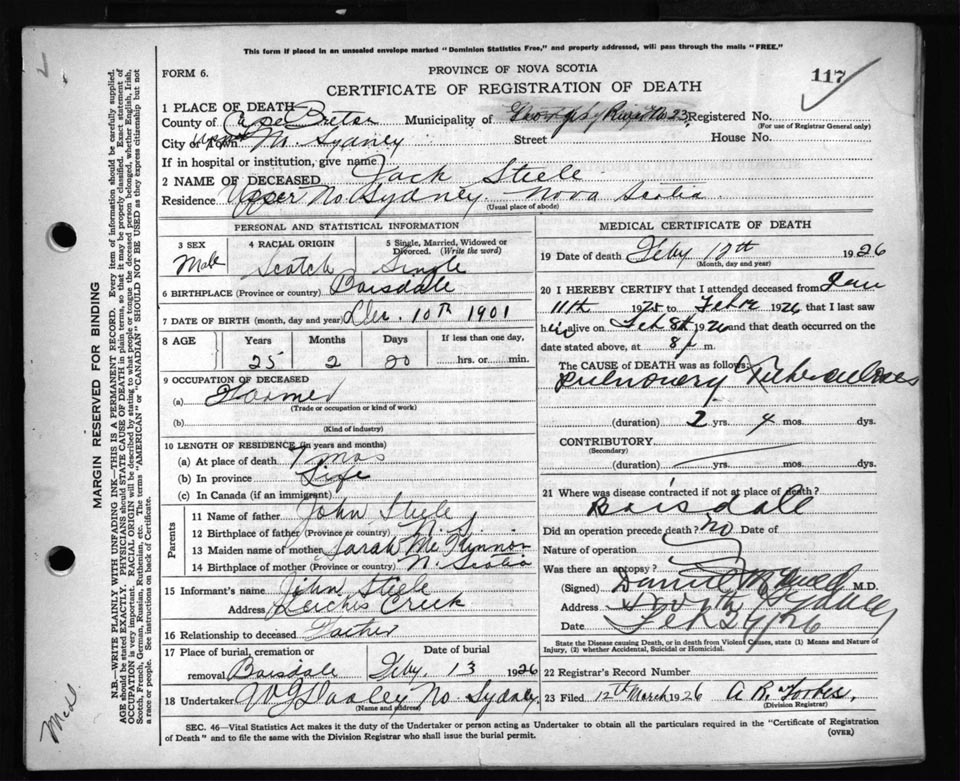 This form if placed in an unsealed envelope marked "Dominion Statistics Free," and properly addressed, will pass through the mails "FREE."
FORM 6.
PROVINCE OF NOVA SCOTIA
117
CERTIFICATE OF REGISTRATION OF DEATH
1 PLACE OF DEATH
County of Cape Breton Municipality of River No 23 Registered No.
(For use of Registrar General only)
City or Town N. Sydney Street House No.
If in hospital or institution, give name
2 NAME OF DECEASED Jack Steele
Residence Upper No. Sydney. Nova Scotia
(Usual place of abode)
PERSONAL AND STATISTICAL INFORMATION
3 SEX Male
4 RACIAL ORIGIN Scotch
5 Single, Married, Widowed or Divorced. (Write the word) Single
6 BIRTHPLACE (Province or country) Boisdale
7 DATE OF BIRTH (month, day and year) Dec. 10th 1901
8 AGE Years Months Days If less than one day,
25 2 00 hrs. or min.
9 OCCUPATION OF DECEASED
(a) Farmer
(Trade or occupation or kind of work)
(b)
(Kind of industry)
10 LENGTH OF RESIDENCE (in years and months)
(a) At place of death 7 mos
(b) In province Life
(c) In Canada (if an immigrant)
Parents
11 Name of father John Steele
12 Birthplace of father (Province or country) N. S.
13 Maiden name of mother Sarah McKinnon
14 Birthplace of mother (Province or country) N. Scotia
15 Informant's name John Steele
Address Leiches Creek
16 Relationship to deceased Father
17 Place of burial, cremation or removal Boisdale
Date of burial Feby. 13 1926
18 Undertaker W J Dooley No. Sydney.
(Name and address)
MEDICAL CERTIFICATE OF DEATH
19 Date of death Feby 10th 1926
(Month, day and year)
20 I HEREBY CERTIFY that I attended deceased from Jan
11th 1925 to Feb 1926 that I last saw
him alive on Feb 8th 1926 and that death occurred on the
date stated above, at 8 p m.
The CAUSE OF DEATH was as follows:
Pulmonery Tuberculoses
(duration) 2 yrs. 4 mos. dys.
CONTRIBUTORY
(Secondary)
(duration) yrs. mos. dys.
21 Where was disease contracted if not at place of death?
Boisdale
Did an operation precede death? no Date of
Nature of operation
Was there an autopsy?
(Signed) Daniel M.D.
Address North Sydney
Date Feb 1926
State the Disease causing Death, or in death from Violent Causes, state (1) Means and Nature of
Injury, (2) whether Accidental, Suicidal or Homicidal.
22 Registrar's Record Number
23 Filed 12th March 1926 A. R. Forbes.
(Division Registrar)
SEC. 46—Vital Statistics Act makes it the duty of the Undertaker or person acting as Undertaker to obtain all the particulars required in the "Certificate of Registration
of Death" and to file the same with the Division Registrar who shall issue the burial permit.
(OVER)
MARGIN RESERVED FOR BINDING
N.B.—WRITE PLAINLY WITH UNFADING INK—THIS IS A PERMANENT RECORD. Every item of information should be carefully supplied.
AGE should be stated EXACTLY. PHYSICIANS should STATE CAUSE OF DEATH in plain terms, so that it may be properly classified. Exact statement of
OCCUPATION is very important. RACIAL ORIGIN will be described by stating to what people or tongue the deceased person belonged, whether English, Irish,
Scotch, French, German, Russian, Ruthenian, etc. The terms "AMERICAN" or "CANADIAN" SHOULD NOT BE USED as they express citizenship but not
a race or people. See instructions on back of Certificate.